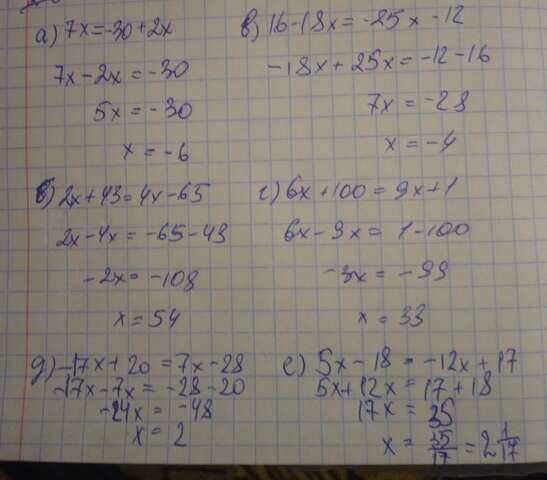 а) 7x = -30 + 2x
7x - 2x = -30
5x = -30
x = -6
б) 16 - 18x = -25x - 12
-18x + 25x = -12 - 16
7x = -28
x = -4
в) 2x + 43 = 4x - 65
2x - 4x = -65 - 43
-2x = -108
x = 54
г) 6x + 100 = 9x + 1
6x - 9x = 1 - 100
-3x = -99
x = 33
д) -17x + 20 = 7x - 28
-17x - 7x = -28 - 20
-24x = -48
x = 2
е) 5x - 18 = -12x + 17
5x + 12x = 17 + 18
17x = 35
x = 35/17 = 2 1/17